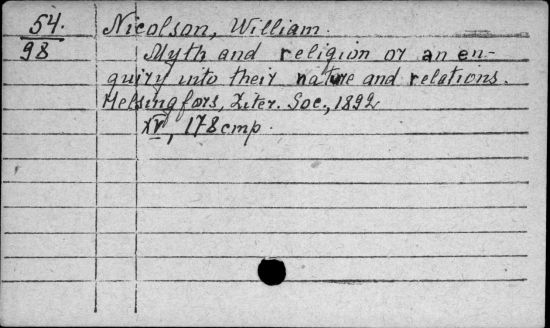 54. Nicolson, William.
98 Myth and religion or an en-
quiry into their nature and relations.
Helsingfors, Liter. Soc., 1892
XV, 178 стр.